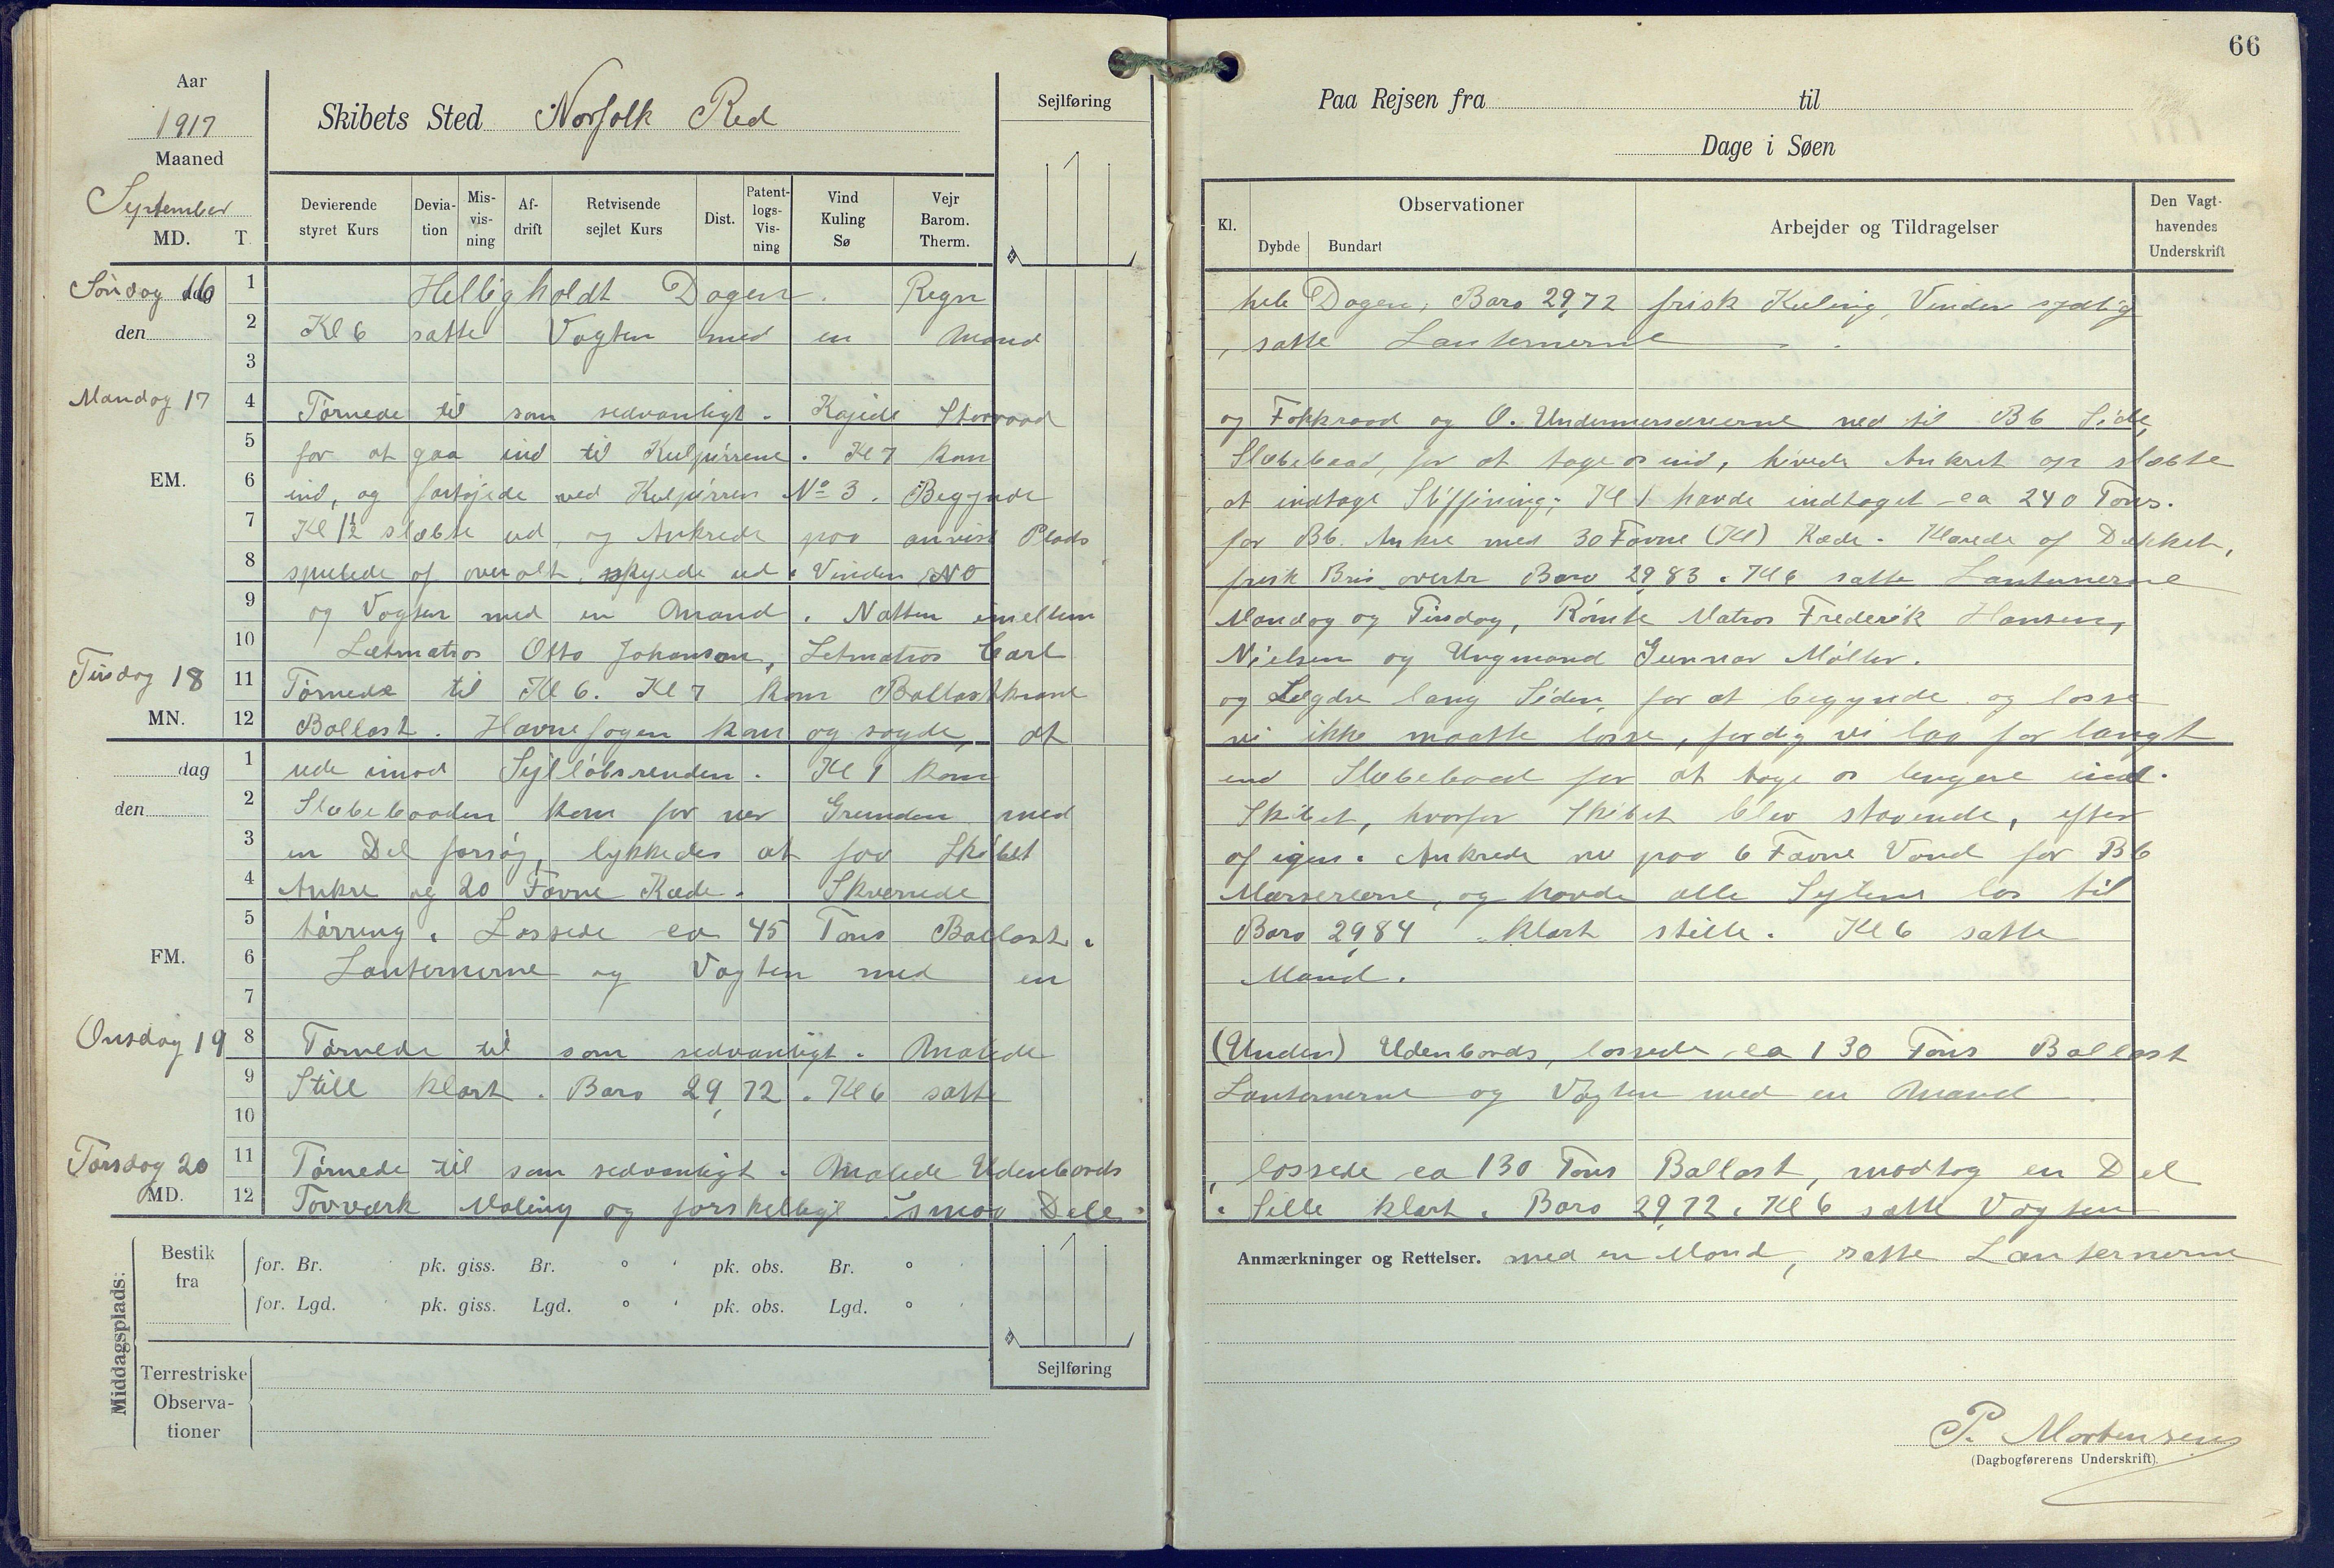 66
Aar
1917
Maaned
September
MD. T.
Skibets Sted Norfolk Red
Sejlføring
Paa Rejsen fra til
Dage i Søen
Devierende styret Kurs
Deviation
Misvisning
Afdrift
Retvisende sejlet Kurs
Dist.
Patentlogs-Visning
Vind Kuling Sø
Vejr Barom. Therm.
Kl.
Observationer
Dybde Bundart
Arbejder og Tildragelser
Den Vagthavendes Underskrift
Søndag 16 1 Helligholdt Dagen. Regn hele Dagen, Baro 29,72 frisk Kuling, Vinden sydlig
den 2 Kl 6 satte Vagten med en Mand, satte Lanternerne.
3
Mandag 17 4 Tørnede til som sedvanligt. Kajede Storraad og Fokkraad og O. Undermersræerne ned til BB Side,
5 for at gaa ind til Kulpirrene. Kl 7 kom Slæbebaad, for at tage os ind, hivede Ankret op slæbte
EM. 6 ind, og fortøjede ved Kulpirren No 3. Begynde at indtage Stiffning; Kl 1 havde indtaget ca 240 Tons.
7 Kl 1½ slæbte ud, og Ankrede paa anvist Plads for BB. Anker med 30 Favne (Kl) Kæde. Klarede af Dækket,
8 spulede af overalt, skyede ud. Vinden NO frisk Bris overtr Baro 29,83. Kl 6 satte Lanternerne
9 og Vagten med en Mand. Natten imellem Mandag og Tirsdag, Rømte Matros Frederik Hansen,
10 Letmatros Otto Johanson, Letmatros Carl Nielsen og Ungmand Gunnar Möller.
Tirsdag 18 11 Tørnede til Kl 6. Kl 7 kom Ballastkrane og Lægdre lang Siden, for at begynde og losse
MN. 12 Ballast. Havnefogen kom og sagde, at vi ikke maatte losse, fordy vi laa for langt
dag 1 ude imod Sejlløbsrenden. Kl 1 kom end Slæbebaad for at tage os lengere ind.
den 2 Slæbebaaden kom for ner Grunden med Skibet, hvorfor Skibet blev staaende, efter
3 en Del forsøg, lykkedes at faa Skibet af igen. Ankrede nu paa 6 Favne Vand for BB
4 Anker og 20 Favne Kæde. Skverede Mersereerne, og havde alle Sejlene los til
5 tørring. Lossede ca 45 Tons Ballast. Baro 29,84 klart stille. Kl 6 satte
FM. 6 Lanternerne og Vagten med en Mand.
7
Onsdag 19 8 Tørnede til som sedvanligt. Malede (Unden) Udenbords, lossede ca 130 Tons Ballast
9 Still klart. Baro 29,72. Kl 6 satte Lanternerne og Vagten med en Mand.
10
Torsdag 20 11 Tørnede til som sedvanligt. Malede Udenbords, lossede ca 130 Tons Ballast, modtog en Del
MD. 12 Tovværk Maling og forskelligt Smaa Dele. Stille klart. Baro 29,72. Kl 6 satte Vagten
Anmærkninger og Rettelser. med en Mand, satte Lanternerne
Middagsplads:
Bestik fra
for. Br. pk. giss. Br. ° ' pk. obs. Br. °
for. Lgd. pk. giss. Lgd. ° ' pk. obs. Lgd. °
Sejlføring
Terrestriske Observationer
P. Mortensen
(Dagbogførerens Underskrift).